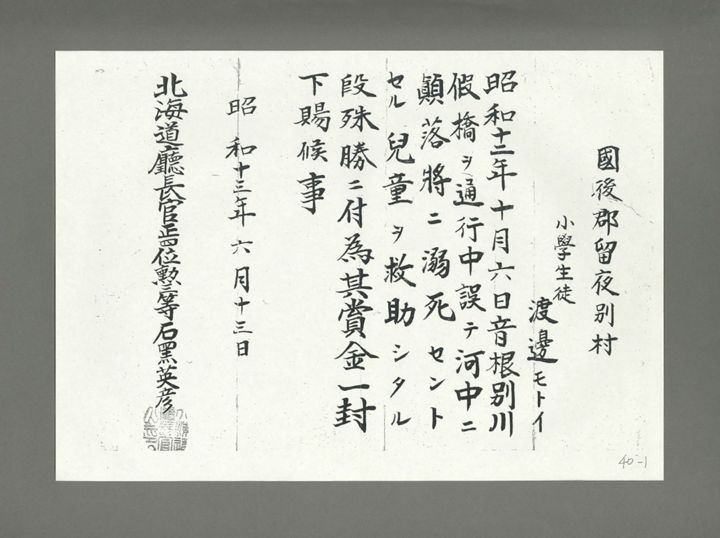 國後郡留夜別村
小學生徒
渡邊モトイ
昭和十二年十月六日音根別川
假橋ヲ通行中誤テ河中ニ
顚落將ニ溺死セント
セル兒童ヲ救助シタル
段殊勝ニ付為其賞金一封
下賜候事
昭和十三年六月十三日
北海道廳長官正四位勲三等石黑英彦
40-1